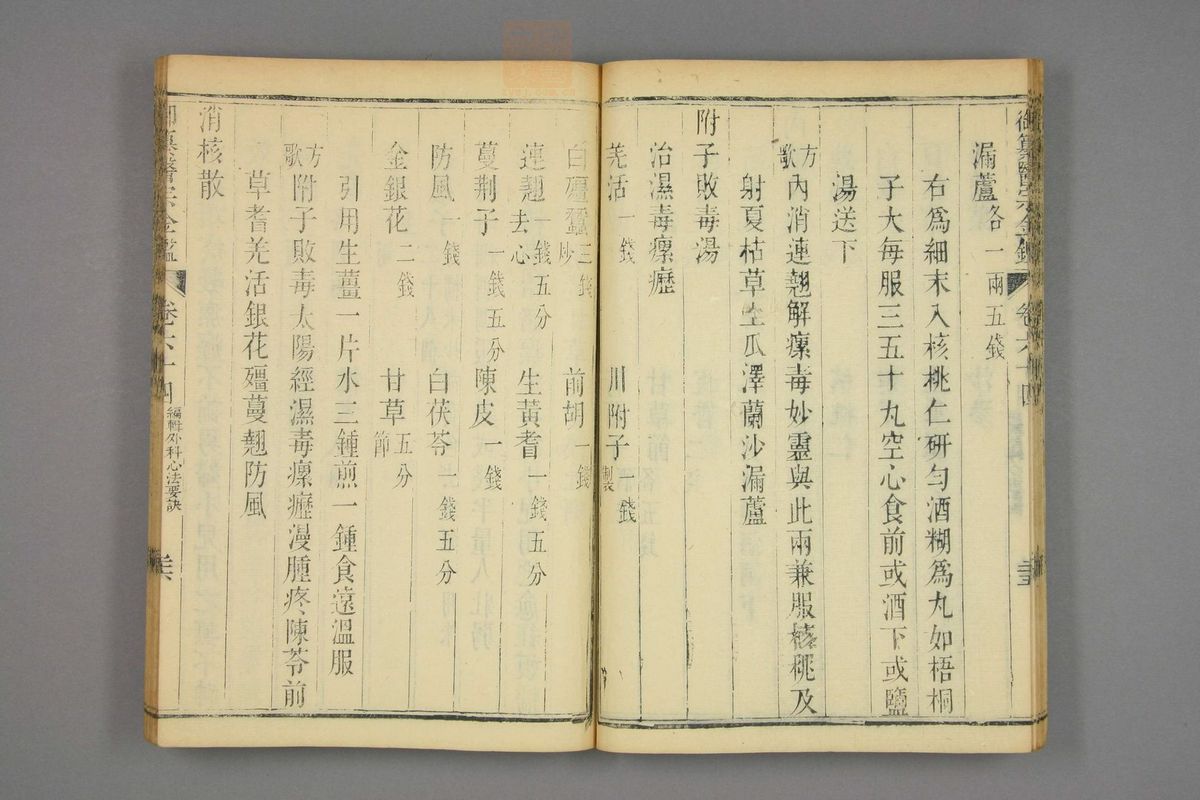 御纂醫宗金鑑 卷六十四
漏蘆各一兩五錢
右爲細末入核桃仁研勻酒糊爲丸如梧桐
子大每服三五十丸空心食前或酒下或鹽
湯送下
方歌 內消連翹解瘰毒妙靈與此兩兼服核桃及
射夏枯草土瓜澤蘭沙漏蘆
附子敗毒湯
治濕毒瘰癧
羌活一錢 川附子製一錢
白殭蠶炒三錢 前胡一錢
連翹去心一錢五分 生黃耆一錢五分
蔓荆子一錢五分 陳皮一錢
防風一錢 白茯苓一錢五分
金銀花二錢 甘草節五分
引用生薑一片水三鍾煎一鍾食遠溫服
方歌 附子敗毒太陽經濕毒瘰癧漫腫疼陳苓前
草耆羌活銀花殭蔓翹防風
消核散
御纂醫宗金鑑 卷六十四 編輯外科心法要訣